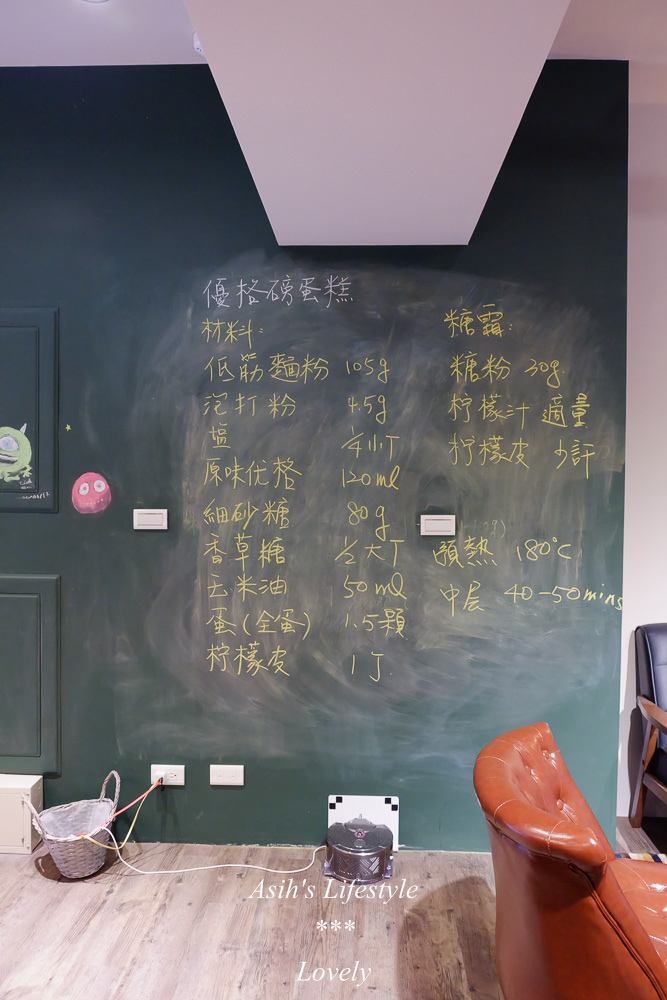 優格磅蛋糕
材料:
低筋麵粉 105g
泡打粉 4.5g
塩 ¼小T
原味优格 120ml
細砂糖 80g
香草糖 ½大T
玉米油 50ml
蛋(全蛋) 1.5顆
柠檬皮 1J.
糖霜:
糖粉 30g.
柠檬汁 適量
柠檬皮 少許
預熱 180°C
中层 40-50mins
Asih's Lifestyle
***
Lovely